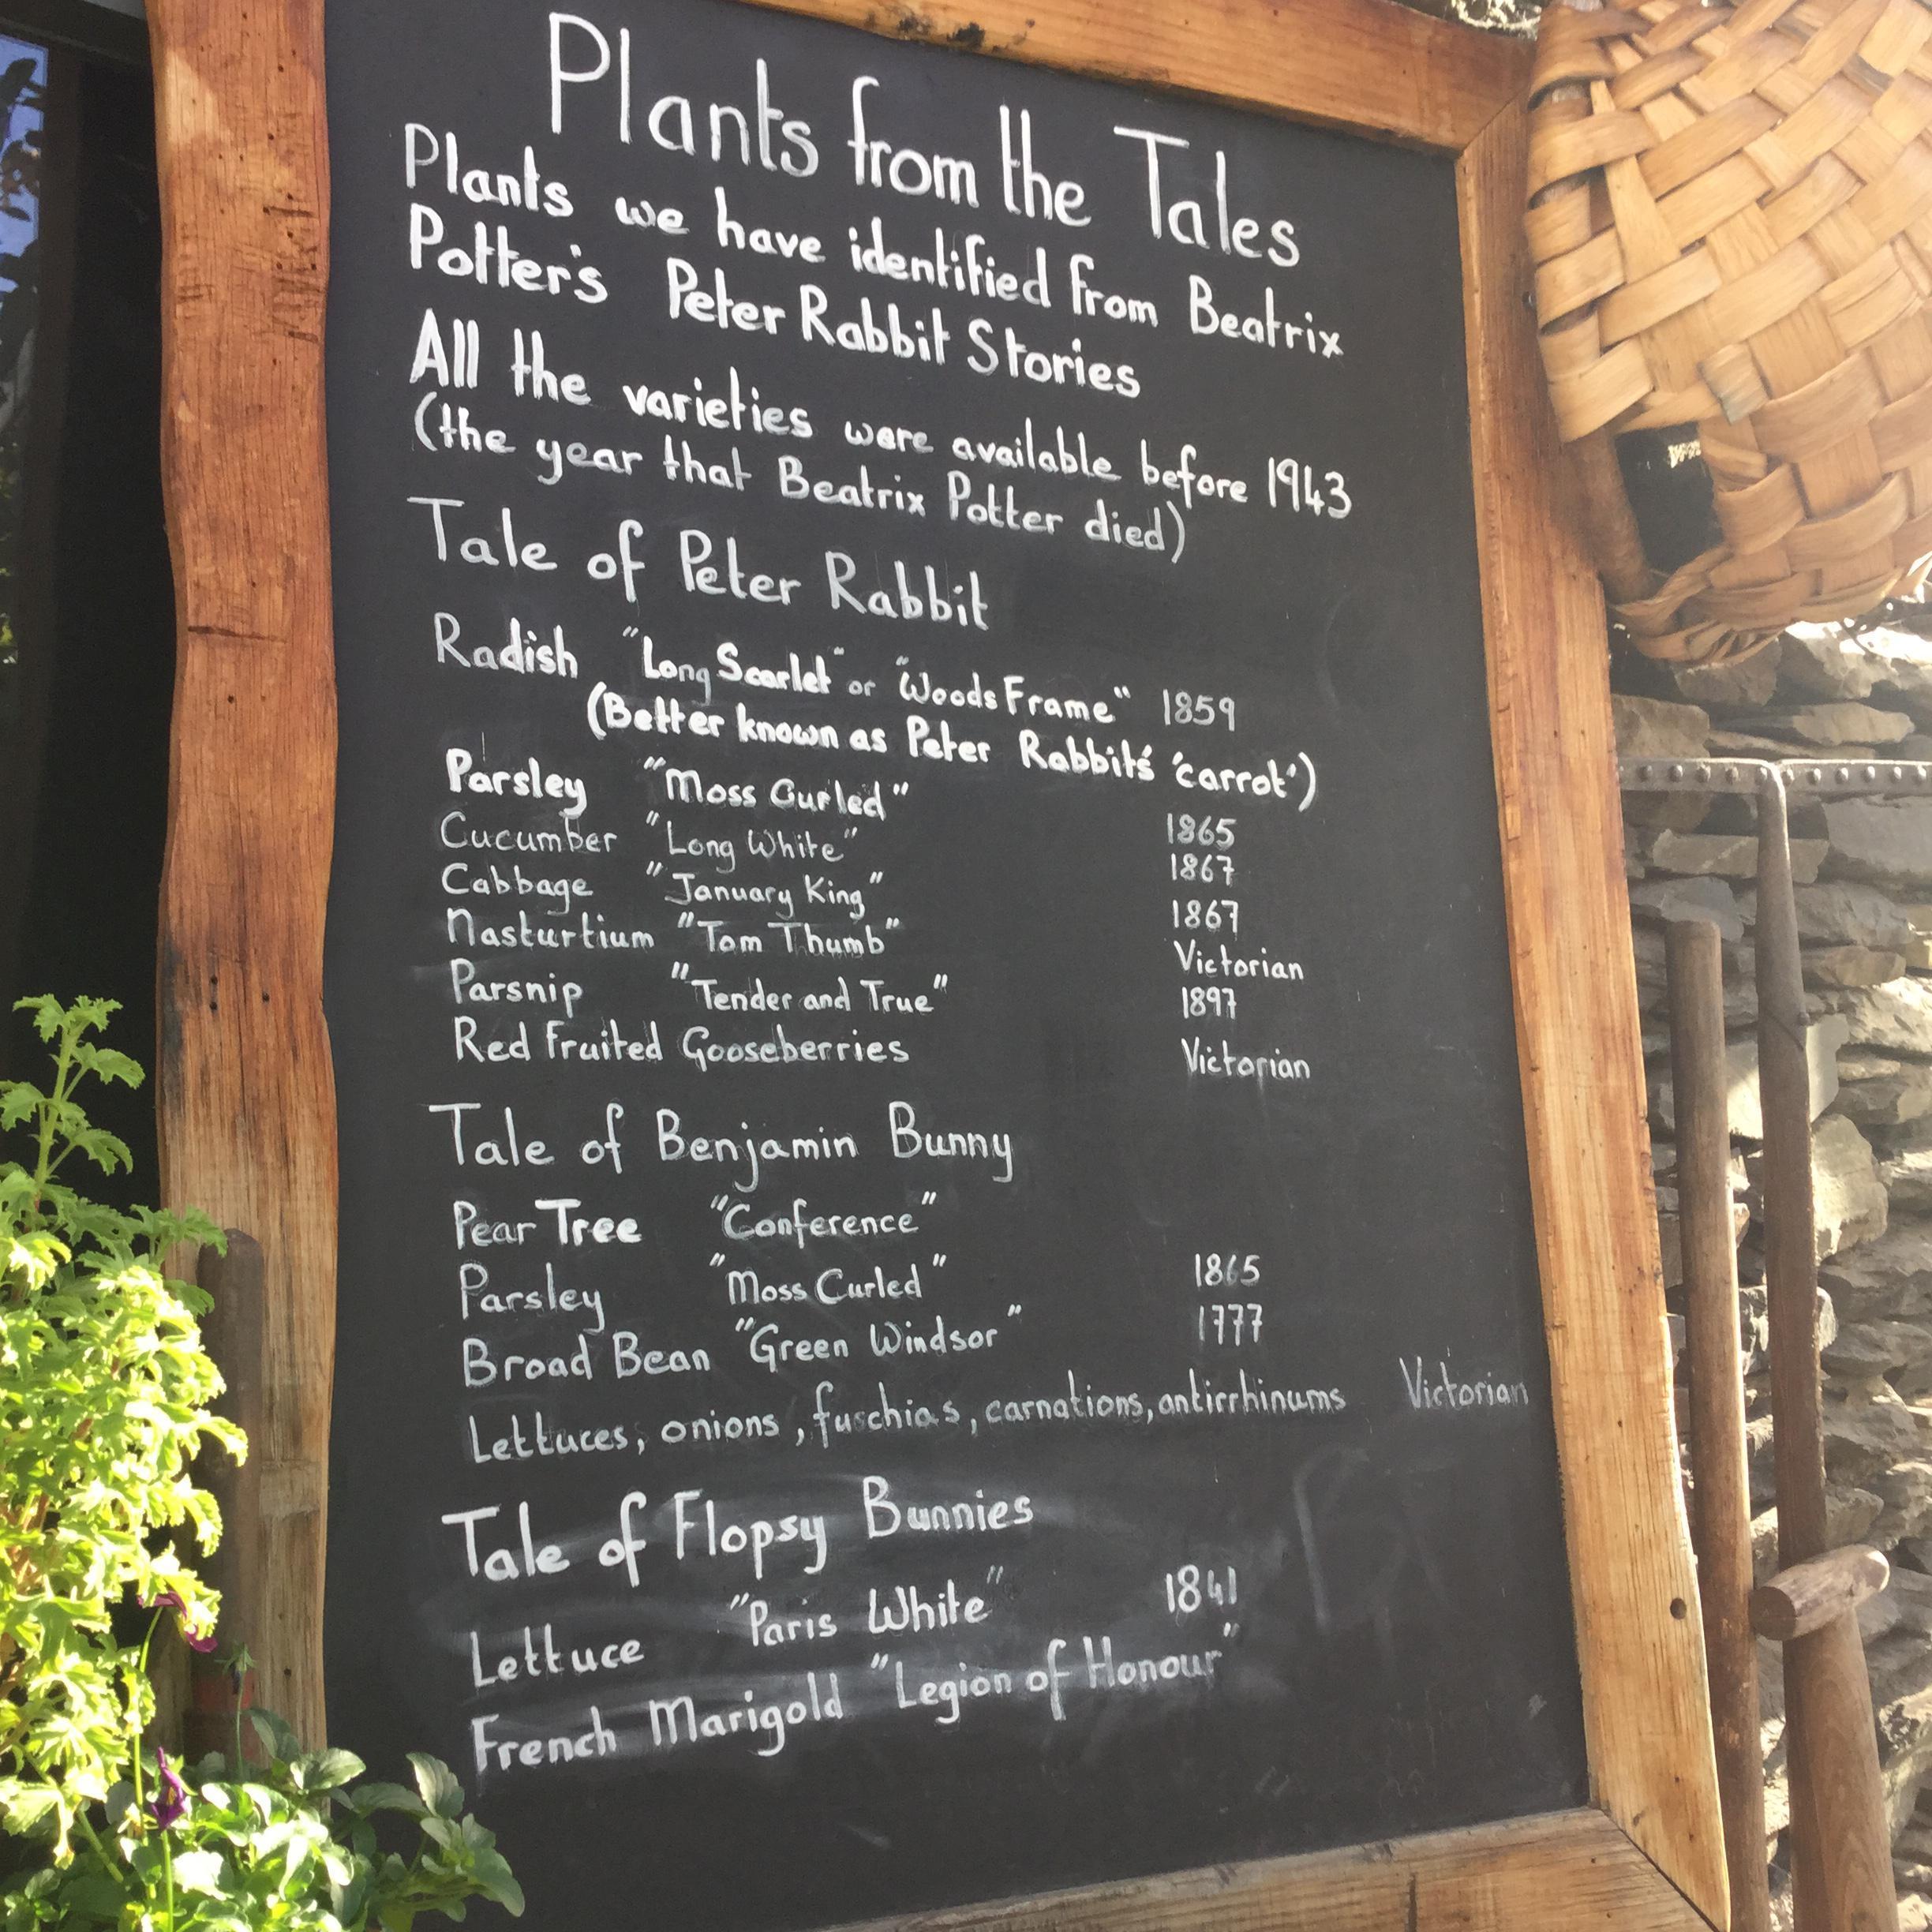 Plants from the Tales
Plants we have identified from Beatrix
Potter's Peter Rabbit Stories
All the varieties were available before 1943
(the year that Beatrix Potter died)
Tale of Peter Rabbit
Radish "Long Scarlet" or "Woods Frame" 1859
(Better known as Peter Rabbit's 'carrot')
Parsley "Moss Curled" 1865
Cucumber "Long White" 1867
Cabbage "January King" 1867
Nasturtium "Tom Thumb" Victorian
Parsnip "Tender and True" 1897
Red Fruited Gooseberries Victorian
Tale of Benjamin Bunny
Pear Tree "Conference"
Parsley "Moss Curled" 1865
Broad Bean "Green Windsor" 1777
Lettuces, onions, fuschias, carnations, antirrhinums Victorian
Tale of Flopsy Bunnies
Lettuce "Paris White" 1841
French Marigold "Legion of Honour"